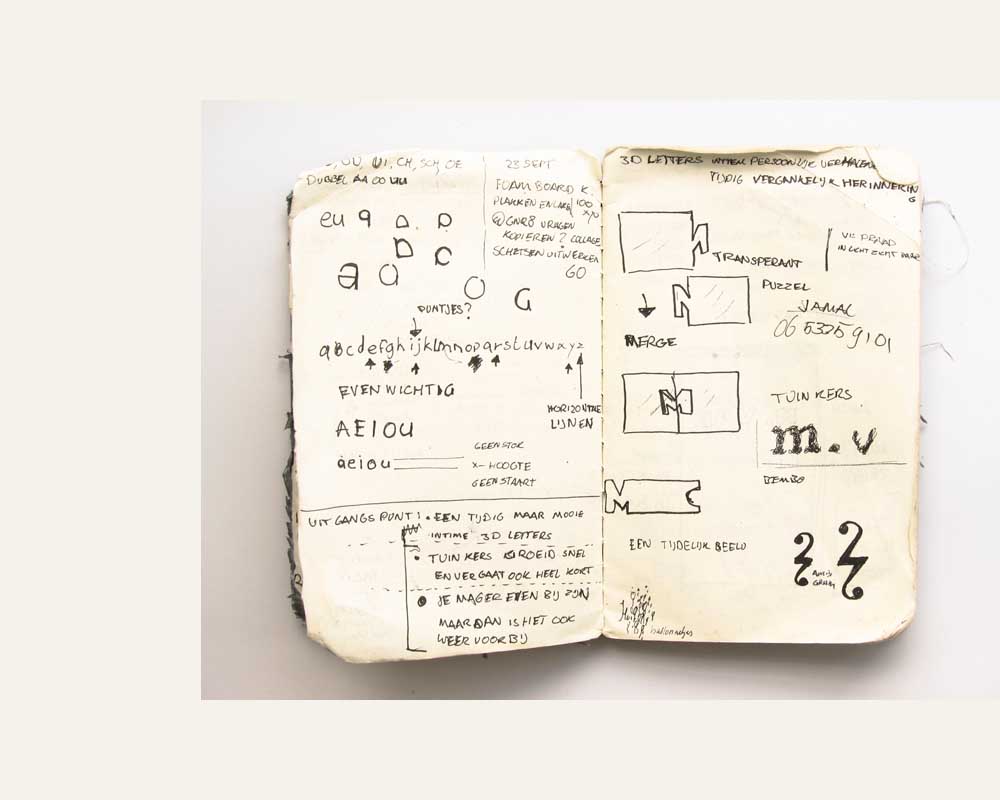 UI, CH, SCH, OE
DUBBEL AA OO UU
23 SEPT
FOAM BOARD K.
PLAKKEN EN LAKE
100
x70
@ GNR8 VRAGEN
KOPIEREN? COLLAGE
SCHETSEN UITWERKEN
GO
eu 9 a. a
a a
a a
a
a
PUNTJES?
abcdefghijklmnopqrstuvwxyz
EVENWICHTIG
HORIZONTALE
LIJNEN
AEIOU
aeiou
GEEN STOK
X-HOOGTE
GEEN STAART
UITGANGSPUNT!
• EEN TIJDIG MAAR MOOIE
INTIME 3D LETTERS
• TUINKERS GROEID SNEL
EN VERGAAT OOK HEEL KORT
• JE MAG ER EVEN BIJ ZIJN
MAAR DAN IS HET OOK
WEER VOORBIJ
3D LETTERS INTIEM PERSOONLIJK VERHALEND
TIJDIG VERGANKELIJK HERINNERIN
G
TRANSPERANT
VIS DRAAD
IN LICHT ZICHT BAAR
PUZZEL
JAMAL
06 53259101
MERGE
M
TUINKERS
m.v
BEMBO
M
EEN TIJDELIJK BEELD
ballonnetjes